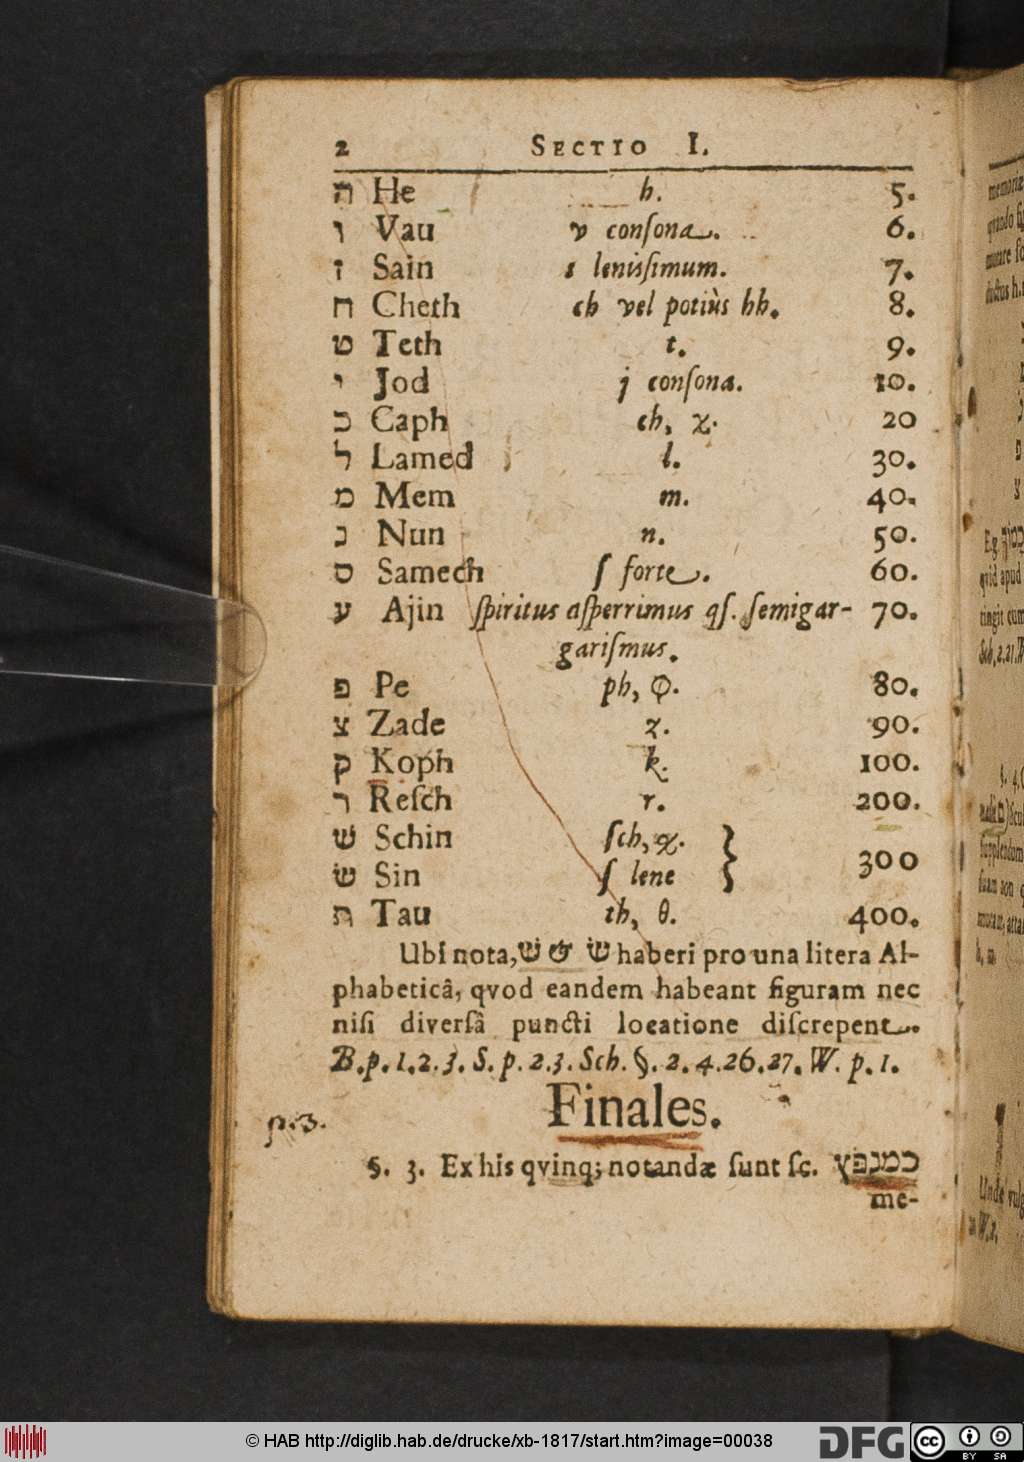 2 SECTIO I.
ה He h. 5.
ו Vau v conſona. 6.
ז Sain s lenisſimum. 7.
ח Cheth ch vel potiùs hh. 8.
ט Teth t. 9.
י Jod j conſona. 10.
כ Caph ch, χ. 20
ל Lamed l. 30.
מ Mem m. 40.
נ Nun n. 50.
ס Samech ſ forte. 60.
ע Ajin ſpiritus aſperrimus qſ. ſemigar- 70.
gariſmus.
פ Pe ph, φ. 80.
צ Zade z. 90.
ק Koph k. 100.
ר Reſch r. 200.
שׁ Schin ſch, 300
שׂ Sin ſ lene
ת Tau th, θ. 400.
Ubi nota, שׁ & שׂ haberi pro una litera Al-
phabeticâ, qvod eandem habeant figuram nec
niſi diverſâ puncti locatione diſcrepent.
B. p. 1. 2. 3. S. p. 2. 3. Sch. §. 2. 4. 26. 27. W. p. 1.
Finales.
p. 3.
§. 3. Ex his qvinq; notandæ ſunt ſc. כמנפץ
me-
memoriæ
quid apud
© HAB http://diglib.hab.de/drucke/xb-1817/start.htm?image=00038
DFG
cc BY SA